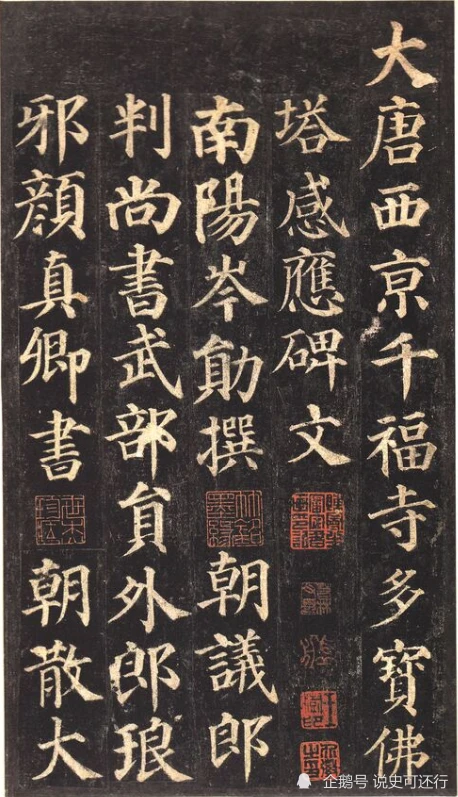 大唐西京千福寺多寶佛
塔感應碑文
南陽岑勛撰 朝議郎
判尚書武部負外郎琅
邪顏真卿書 朝散大
企鹅号 说史可还行